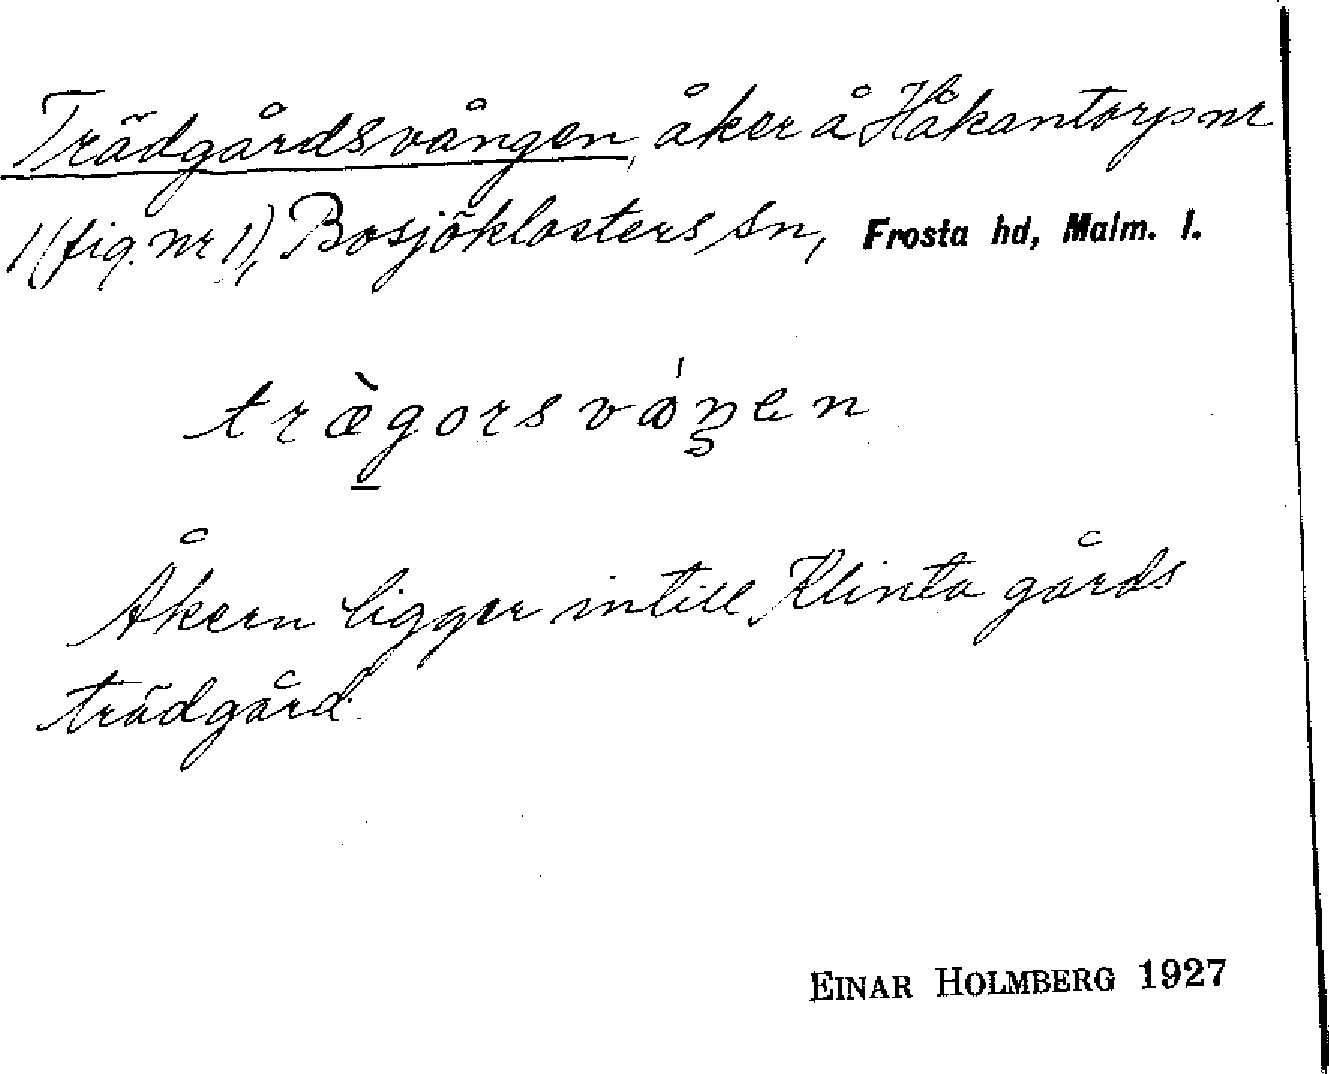 Trädgårdsvången, åker å Håkantorp nr
1 (fig. nr 1), Bosjöklosters sn, Frosta hd, Malm. l.
træ̀gorsvåŋen
Åkern ligger intill Klinta gårds
trädgård.
EINAR HOLMBERG 1927